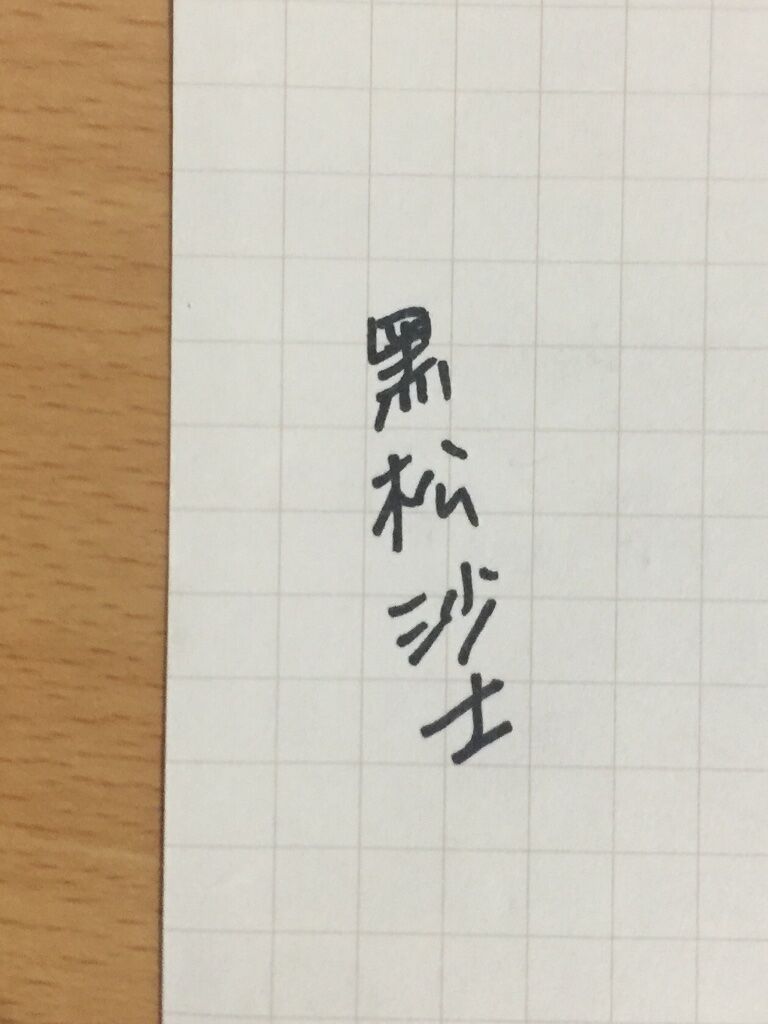 黑松沙士